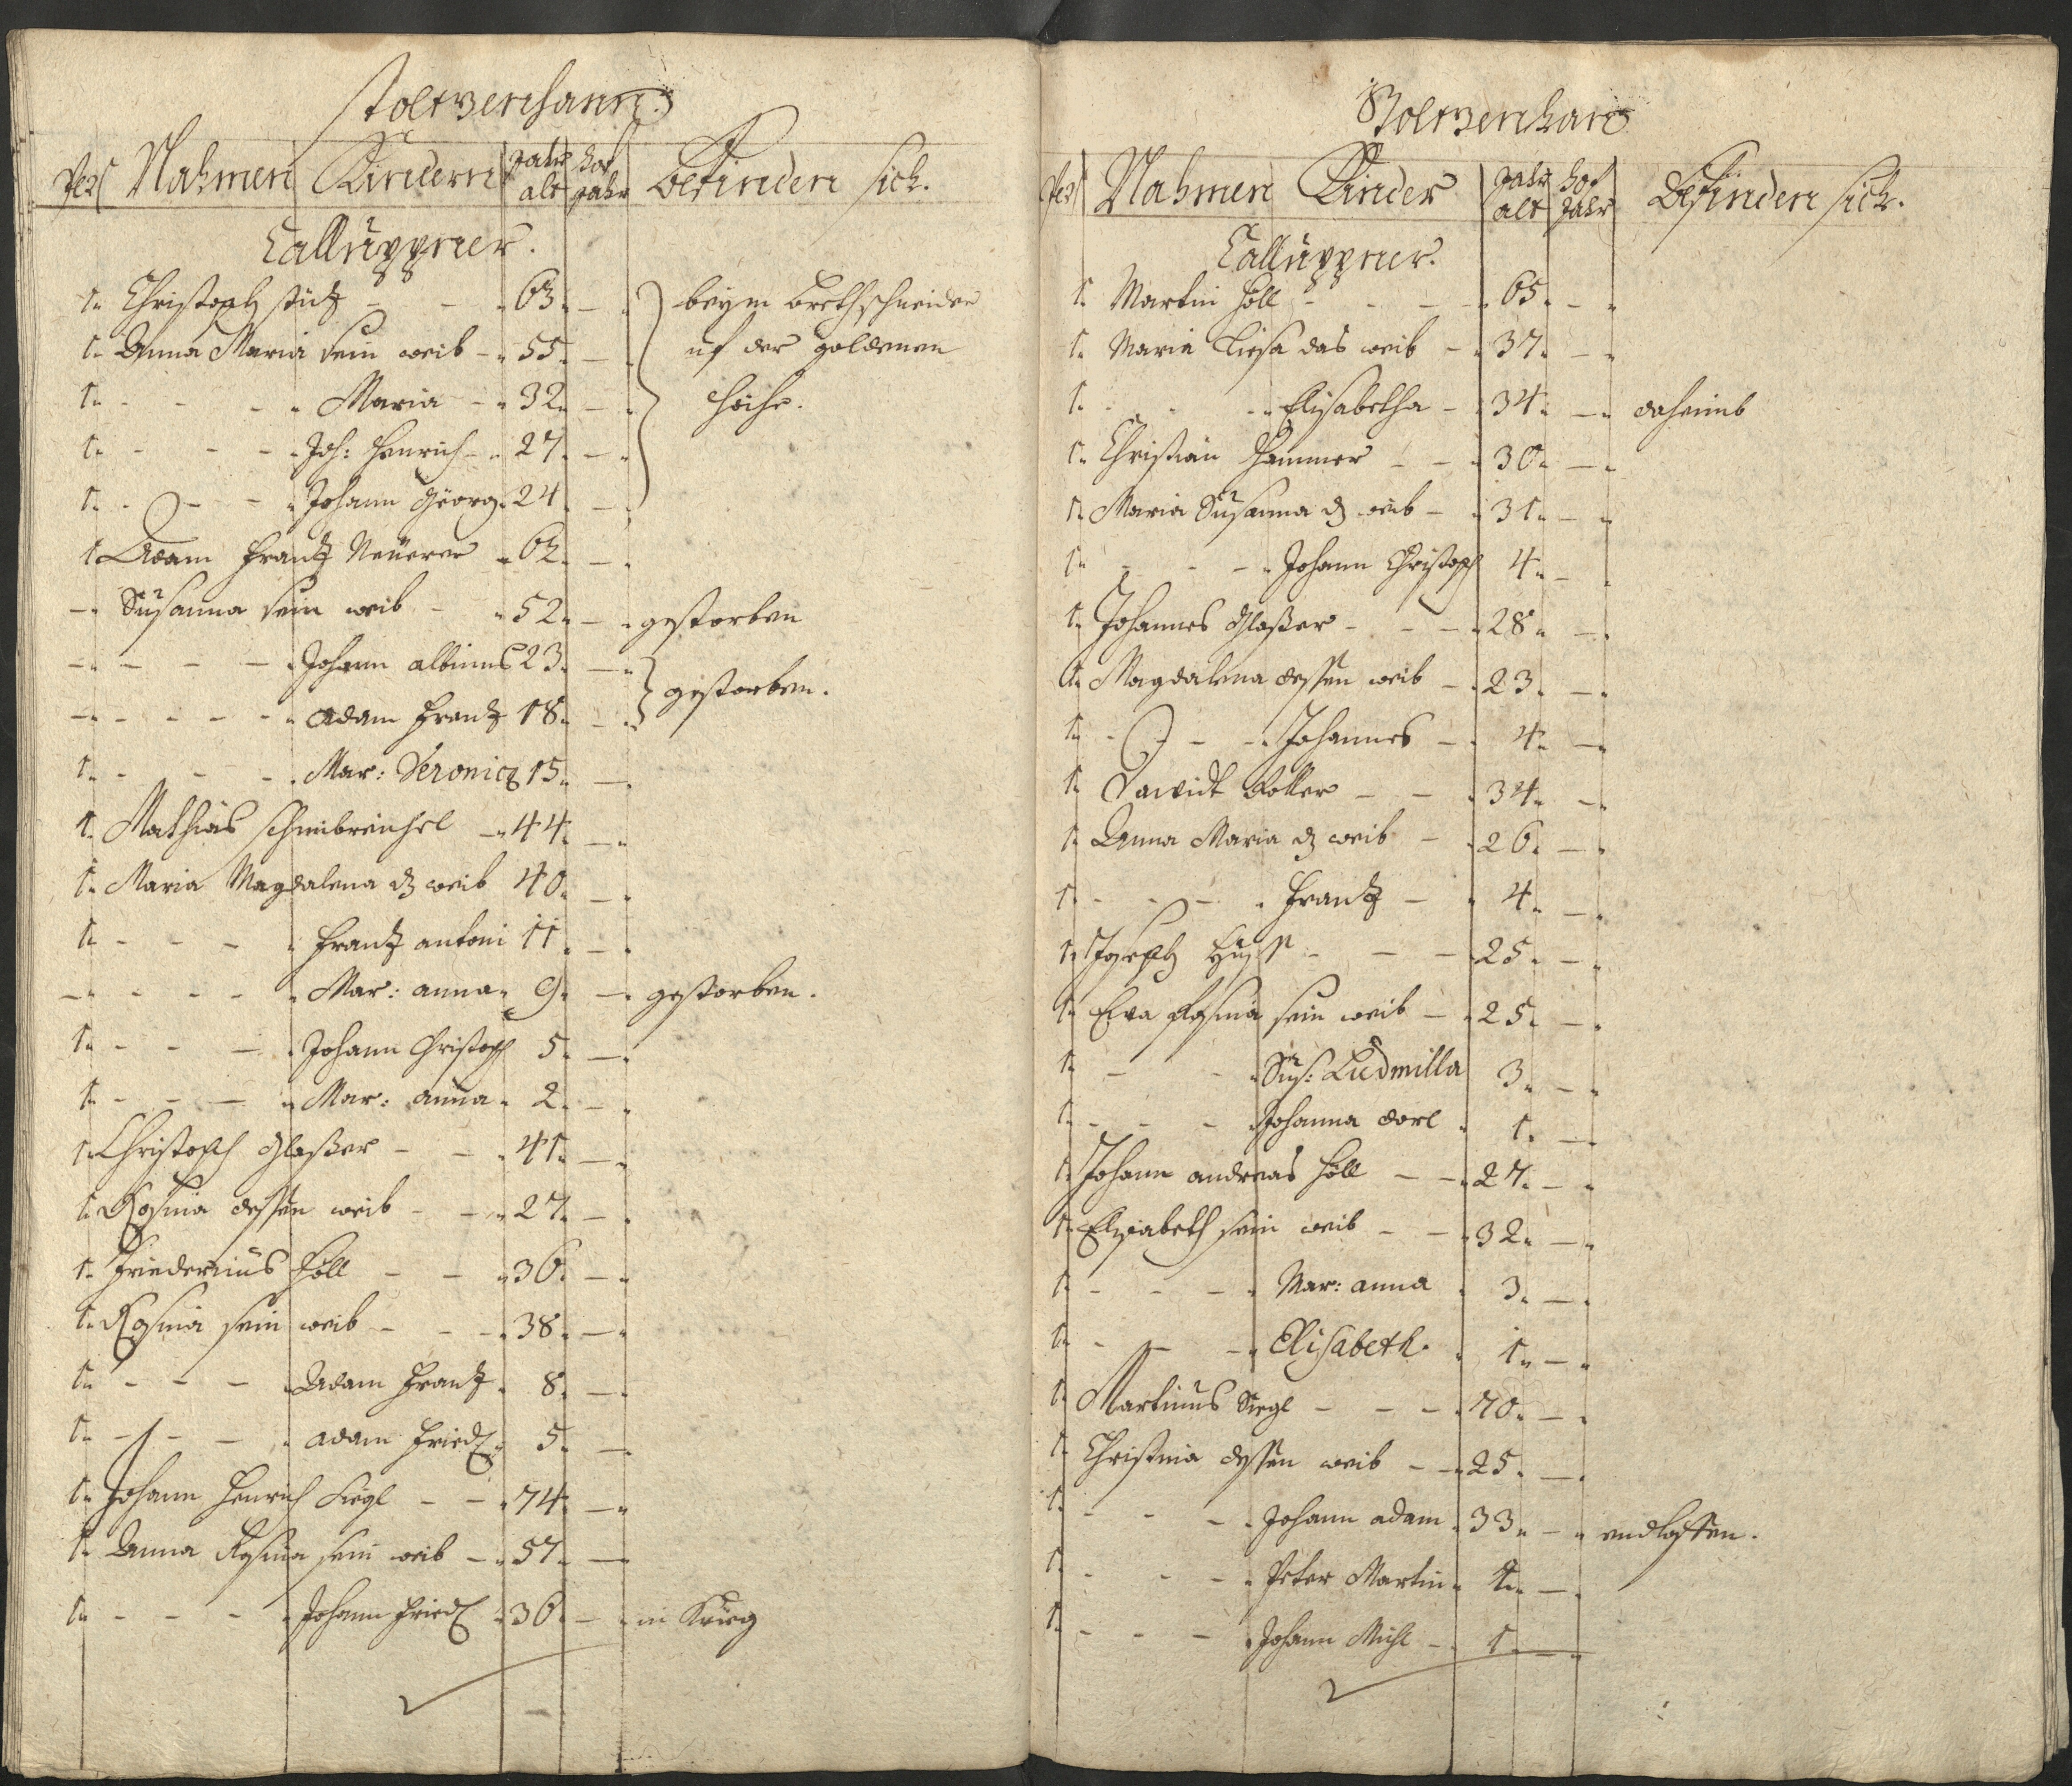 Stoltzenhann
Pers Nahmen Kindern Jahr alt hof Jahr befinden sich.
Calluppner.
1. Christoph stütz - - 63. - beym brethschneider
1. Anna Maria sein weib - 55. - uf der goldenen
1. - - - Maria - 32. - Höhe.
1. - - - Joh: Henrich - 27. -
1. - - - Johann Georg. 24. -
1. Adam Frantz Neüerer 62. -
- Susanna sein weib - 52. - gestorben
- - - - Johann albinus 23. -
- - - - adam Frantz 18. - gestorben.
1. - - - Mar: Veronica 15. -
1. Mathias - 44. -
1. Maria Magdalena d weib 40. -
1. - - - Frantz antoni 11. -
- - - - Mar: anna 9. - gestorben.
1. - - - Johann Christoph 5. -
1. - - - Mar: anna 2. -
1. Christoph Glaßer - - 41. -
1. Rosina dessen weib - - 27. -
1. Höll - - 36. -
1. Rosina sein weib - - - 38. -
1. - - - Adam Frantz 8. -
1. - - - adam Fried 5. -
1. Johann Henrich Siegl - - 74. -
1. Anna Rosina sein weib - 57. -
1. - - - Johann Fried 36. - in Krieg
Stoltzenhan
Pers Nahmen Kinder Jahr alt hof Jahr Befinden sich.
Calluppner.
1. Martin Höll - - - 65. -
1. Maria Liesa das weib - 37. -
1. - - - Elisabetha - 34. - daheimb
1. Christian Hammer - - 30. -
1. Maria Susanna d weib - 31. -
1. - - - Johann Christoph 4. -
1. Johannes Glaßer - - - 28. -
1. Magdalena dessen weib - 23. -
1. - - - Johannes - 4. -
1. Dawidt - - 34. -
1. Anna Maria d weib - 26. -
1. - - - Frantz - 4. -
1. Joseph - - - 25. -
1. Eva Rosina sein weib - 25. -
1. - - Sus: Ludmilla 3. -
1. - - - Johanna dorl 1. -
1. Johann andreas Höll - - 27. -
1. Elisabeth sein weib - - 32. -
1. - - - Mar: anna 3. -
1. - - - Elisabeth. 1. -
1. Martinus Siegl - - - 70. -
1. Christina dessen weib - - 25. -
1. - - - Johann adam 33. - endlossen.
1. - - - Peter Martin 4. -
1. - - - Johann Michl - 1. -